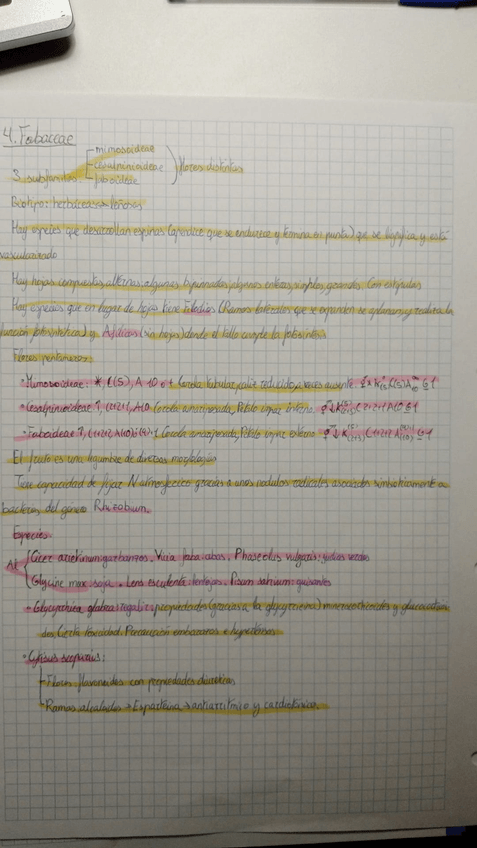 4. Fabaceae
mimosoideae
3 subfamilias: caesalpinioideae Flores distintas
faboideae
Biotipo: herbáceas o leñosas
Hay especies que desarrollan espinas (apéndice que se endurece y termina en punta) que se lignifica y está
vascularizado
Hay hojas compuestas, alternas, algunas bipinnadas, algunas enteras, simples, grandes. Con estípulas
Hay especies que en lugar de hojas tiene Filodios (Ramas laterales que se agrandan se aplanan y realiza la
función fotosintética) y Áfilas (sin hojas) donde el tallo cumple la fotosíntesis
Flores pentámeras:
• Mimosoideae: *, C(5), A 10 G 1 Corola tubular, cáliz reducido, a veces ausente
• Cesalpinioideae ↑, C1+2+2, A10 Corola amariposada, Pétalo superior interno
• Faboideae ↑, Corola amariposada, Pétalo superior externo
El fruto es una legumbre de diversas morfologías
Tiene capacidad de fijar N atmosférico gracias a unos nódulos radicales asociados simbióticamente a
bacterias del género Rhizobium.
Especies:
Cicer arietinum: garbanzos. Vicia faba: abas. Phaseolus vulgaris: judías verdes
Glycine max: soja. Lens esculenta: lentejas. Pisum sativum: guisantes
• Glycyrrhiza glabra: regaliz: propiedades (gracias a la glycyrricina) mineralocorticoides y glucocorticoi
des. Cierta toxicidad. Precaución embarazos e hipertensos
• Cytisus scoparius:
Flores flavonoides con propiedades diuréticas
Ramas alcaloides → Esparteína → antiarrítmico y cardiotónico.